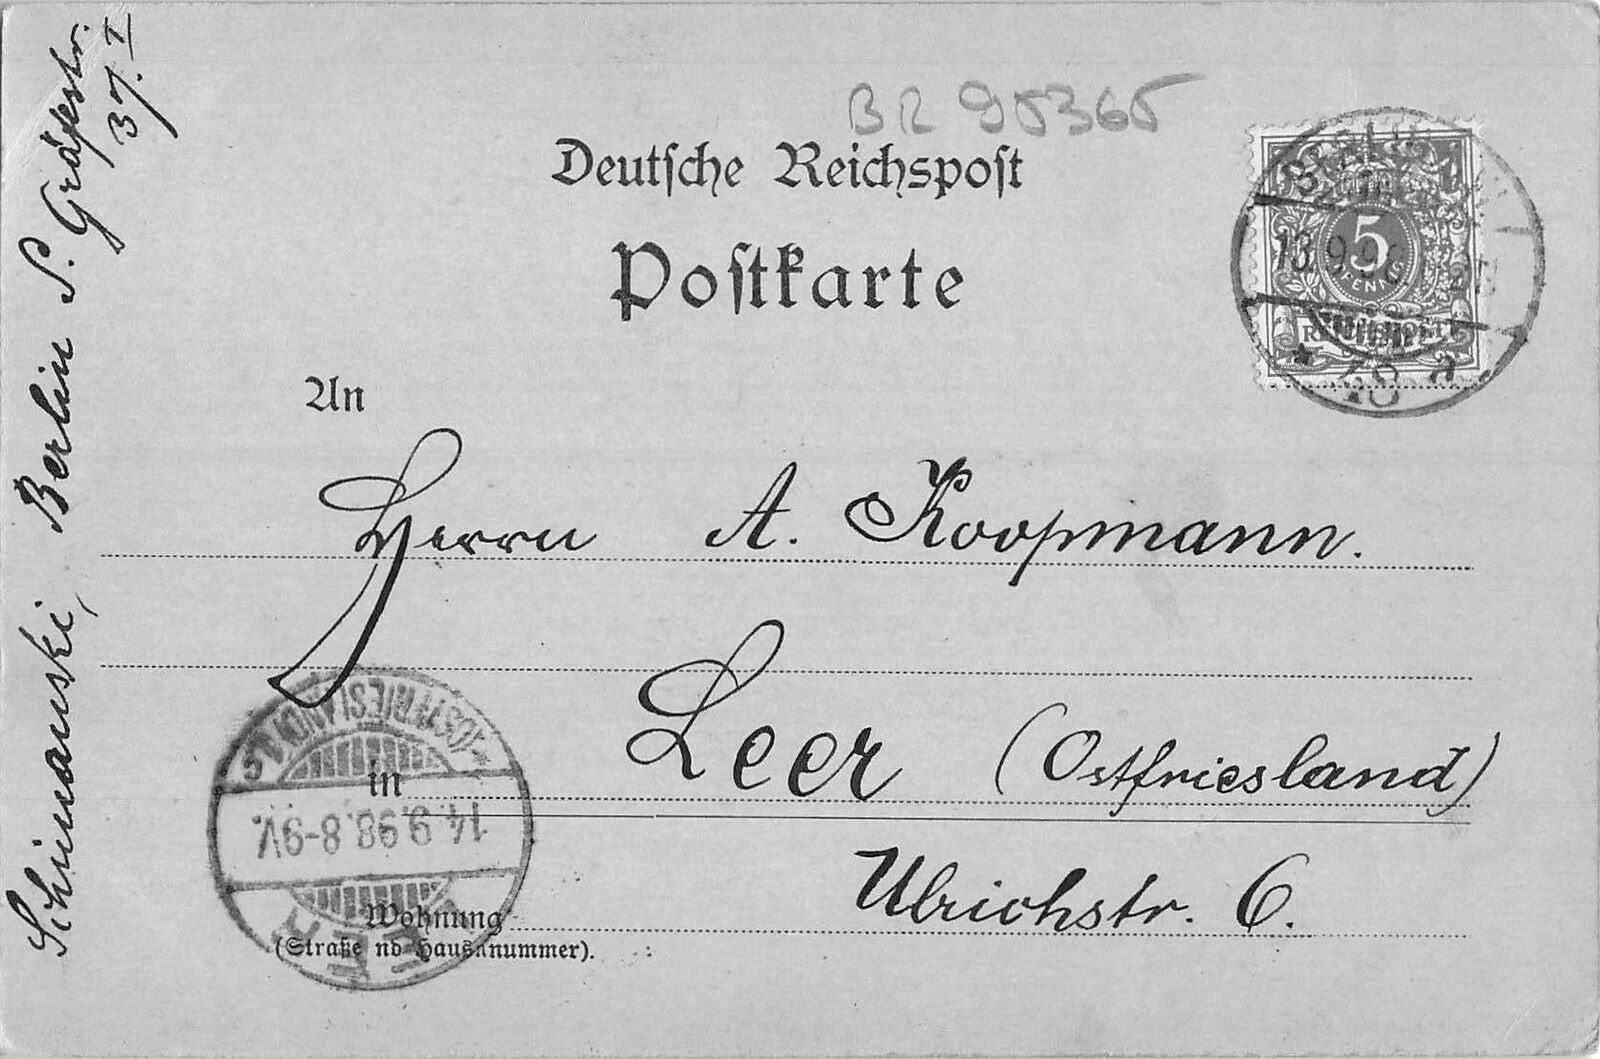 BR 95365
Deutsche Reichspost
Postkarte
5
PFENNIG
REICHSPOST
13.9.98
* 48 a.
An
Herrn A. Koopmann.
Leer (Ostfriesland)
in
Ulrichstr. 6.
Wohnung
(Straße nd Hausnummer).
LEER
14.9.98.8-9V.
(OSTFRIESLAND)
Schimanski, Berlin S. Gräfestr.
37. I